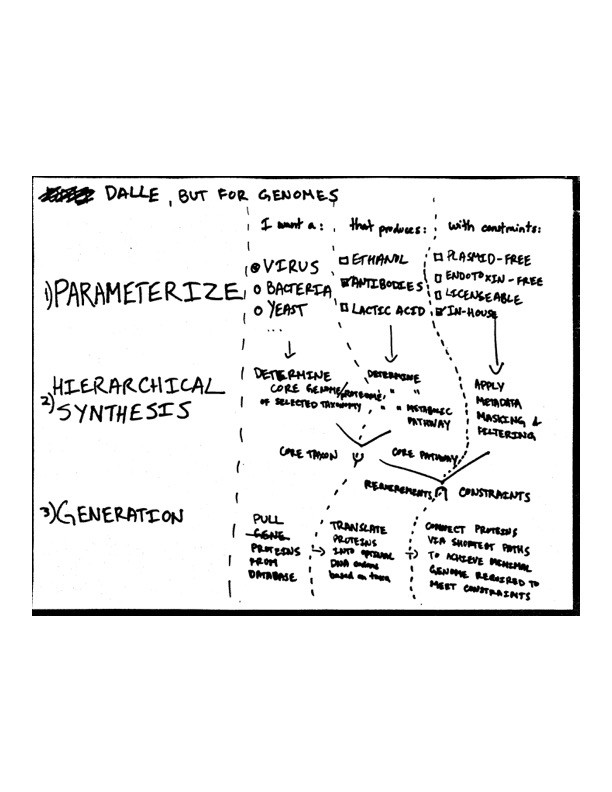 DALLE, BUT FOR GENOMES
I want a:
that produces:
with constraints:
1) PARAMETERIZE
VIRUS
BACTERIA
YEAST
...
ETHANOL
ANTIBODIES
LACTIC ACID
PLASMID-FREE
ENDOTOXIN-FREE
LICENSEABLE
IN-HOUSE
2) HIERARCHICAL
SYNTHESIS
DETERMINE
CORE GENOME/PROTEOME
OF SELECTED TAXONOMY
DETERMINE
" "
" " METABOLIC
PATHWAY
APPLY
METADATA
MASKING &
FILTERING
CORE TAXON ∪ CORE PATHWAY
REQUIREMENTS ∩ CONSTRAINTS
3) GENERATION
PULL
GENE
PROTEINS
FROM
DATABASE
→
TRANSLATE
PROTEINS
INTO OPTIMAL
DNA codons
based on taxa
→
CONNECT PROTEINS
VIA SHORTEST PATHS
TO ACHIEVE MINIMAL
GENOME REQUIRED TO
MEET CONSTRAINTS